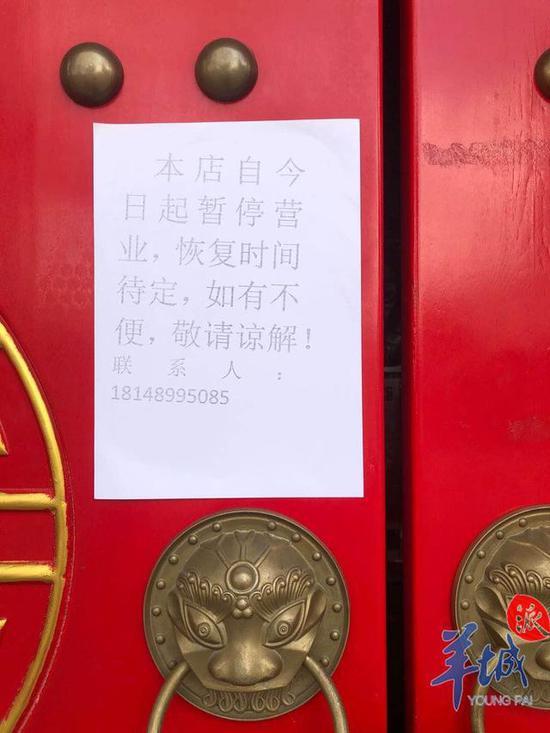 本店自今
日起暂停营
业，恢复时间
待定，如有不
便，敬请谅解！
联系人：
18148995085
羊城派
YOUNG PAI